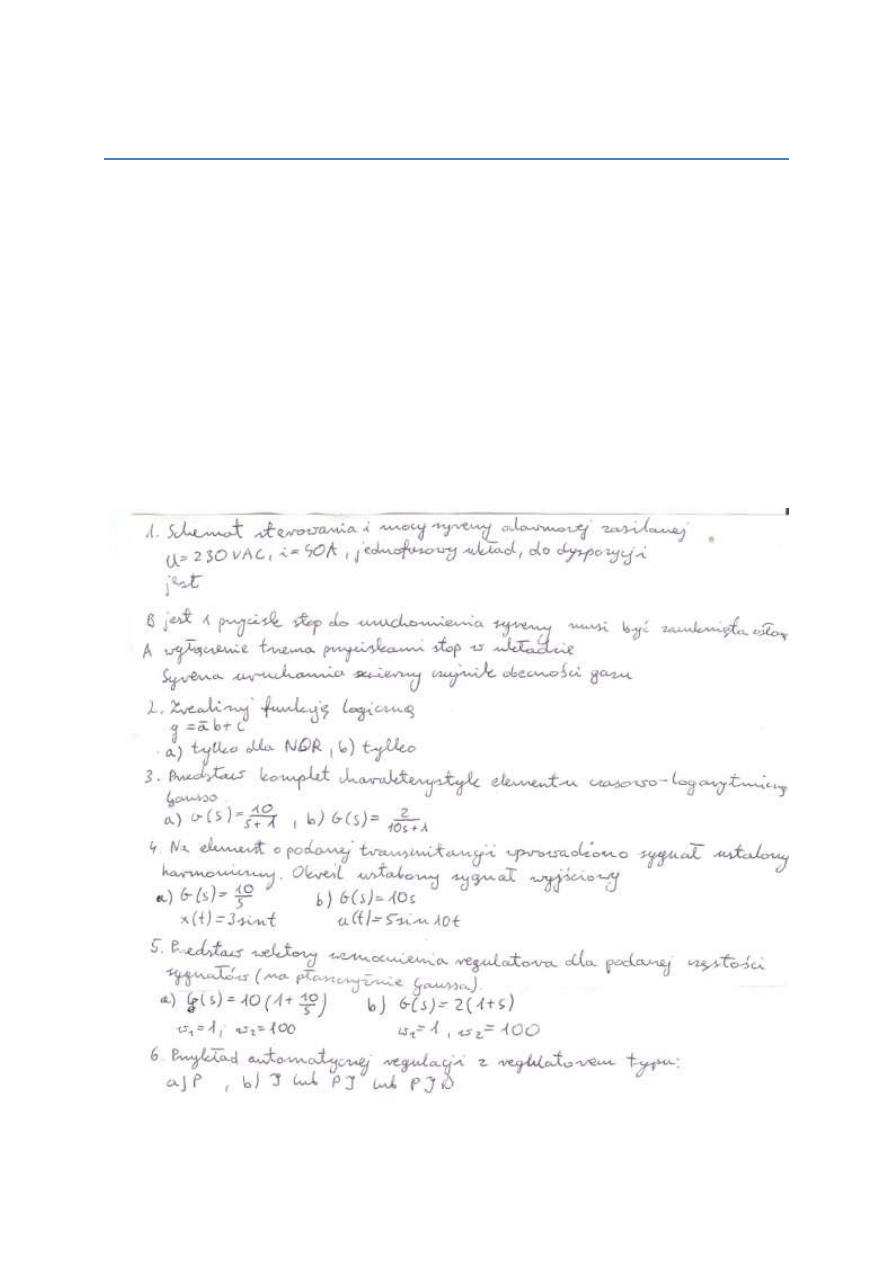 1. Schemat sterowania i mocy syreny alarmowej zasilanej
U=230VAC, i=40A, jednofazowy układ, do dyspozycji
jest
B jest 1 przycisk stop do uruchomienia syreny musi być zamknięta osłona
A wyłączenie trzema przyciskami stop w układzie
Syrena uruchamia zwierny czujnik obecności gazu
2. Zrealizuj funkcję logiczną
y = a̅b+c
a) tylko dla NOR, b) tylko
3. Przedstaw komplet charakterystyk elementu czasowo-logarytmiczny
Gaussa.
a) G(s)=10/(s+1), b) G(s)= 2/(10s+1)
4. Na element o podanej transmitancji wprowadzono sygnał ustalony
harmoniczny. Określ ustalony sygnał wyjściowy
a) G(s)= 10/s b) G(s)=10s
x(t)=3sint u(t)=5sin10t
5. Przedstaw wektory wzmocnienia regulatora dla podanej częstości
sygnałów (na płaszczyźnie Gaussa).
a) G(s)=10(1+10/s) b) G(s)=2(1+s)
ω₁=1, ω₂=100 ω₁=1, ω₂=100
6. Przykład automatycznej regulacji z regulatorem typu:
a) P , b) I lub PI lub PID